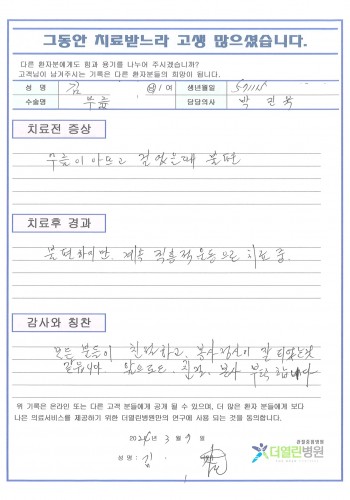 그동안 치료받느라 고생 많으셨습니다.
다른 환자분에게도 힘과 용기를 나누어 주시겠습니까?
고객님이 남겨주시는 기록은 다른 환자분들의 희망이 됩니다.
성 명 김 남 / 여 생년월일
수술명 무릎 담당의사 박
치료전 증상
무릎이 아프고 걸었을때 불편
치료후 경과
불편하지만, 계속 적극적 운동으로 치료 중.
감사와 칭찬
모든 분들이 친절하고, 봉사정신이 잘 되있는것
같읍니다. 앞으로도, 친절, 봉사 부탁합니다
위 기록은 온라인 또는 다른 고객 분들에게 공개 될 수 있으며, 더 많은 환자 분들에게 보다
나은 의료서비스를 제공하기 위한 더열린병원만의 연구에 사용 되는 것을 동의합니다.
3 월 일
성 명 : 김
관절종합병원
더열린병원